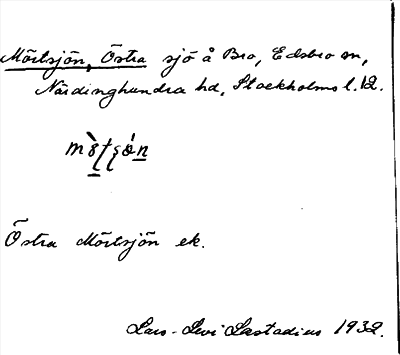 Mörtsjön, Östra sjö å Bro, Edsbro sn,
Närdinghundra hd, Stockholms l. 12.
Östra Mörtsjön ek.
Lars-Levi Læstadius 1932.